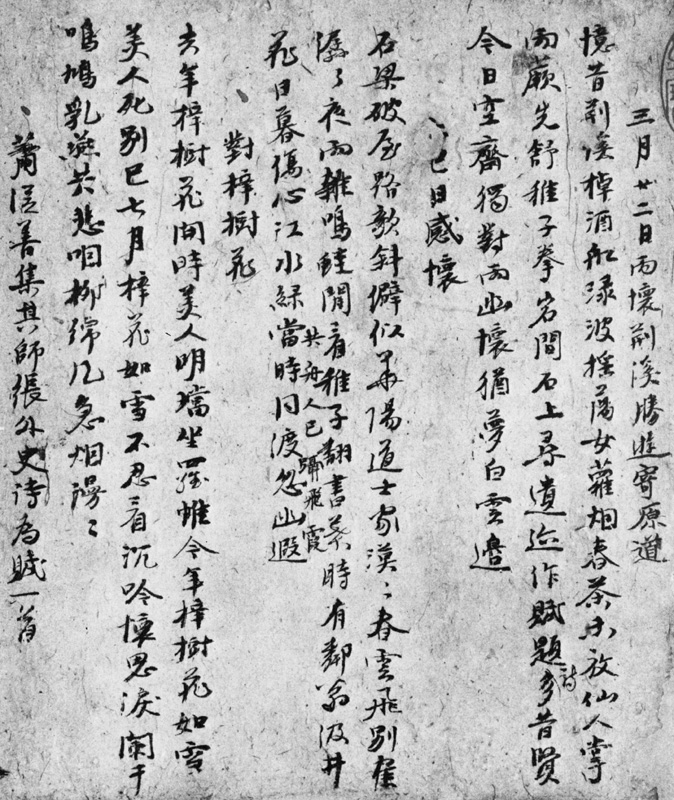 三月廿二日雨懷荊溪勝遊寄原道
憶昔荊溪棹酒船淥波搖蕩女蘿烟春茶未放仙人掌
雨蕨先舒稚子拳岩間石上尋遺迹作賦題詩多昔賢
今日空齋獨對雨幽懷猶夢白雲邊
己日感懷
石梁破屋路欹斜僻似華陽道士家漠〻春雲飛別崖
潺〻夜雨雜鳴蛙閒看稚子翻書葉時有鄰翁汲井
花日暮傷心江水綠當時同渡忽幽遐
共舟人已彌飛霞
對梓樹花
去年梓樹花開時美人明璫坐羅帷今年梓樹花如雪
美人死別已七月梓花如雪不忍看沉吟懷思淚闌干
鳴鳩乳燕共悲咽柳綿風急烟漫〻
蕭從善集其師張外史詩為賦一首